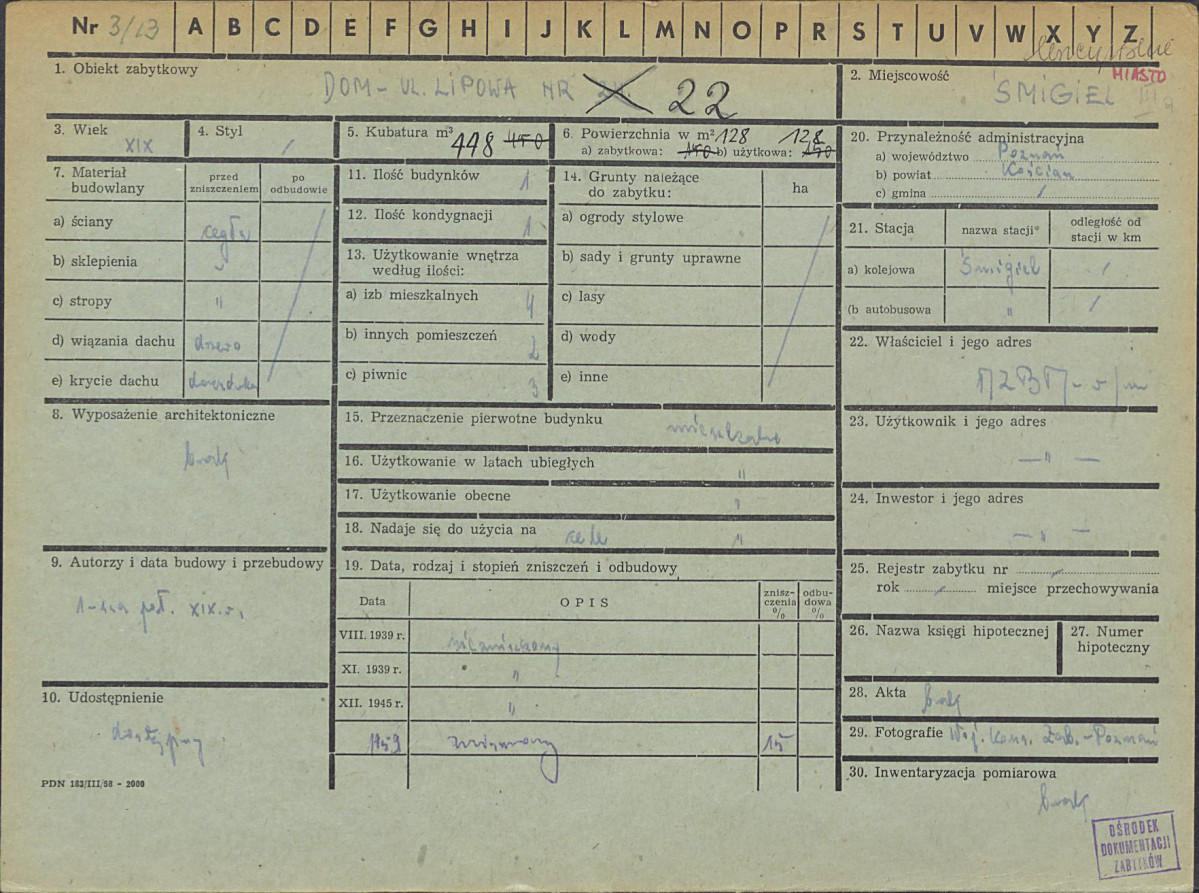 Nr 3/13 A B C D E F G H I J K L M N O P R S T U V W X Y Z
MIASTO
1. Obiekt zabytkowy
DOM - UL. LIPOWA NR 22
2. Miejscowość
ŚMIGIEL
3. Wiek
XIX
4. Styl
/
5. Kubatura m³
448 450
6. Powierzchnia w m² 128 128
a) zabytkowa: 150 b) użytkowa: 150
7. Materiał budowlany
przed zniszczeniem
po odbudowie
a) ściany cegła
b) sklepienia "
c) stropy "
d) wiązania dachu drewno
e) krycie dachu dachówka
8. Wyposażenie architektoniczne
brak
9. Autorzy i data budowy i przebudowy
1-sza poł. XIX w.
10. Udostępnienie
dostępny
PDN 183/III/58 - 2000
11. Ilość budynków 1
12. Ilość kondygnacji 1
13. Użytkowanie wnętrza według ilości:
a) izb mieszkalnych 4
b) innych pomieszczeń 2
c) piwnic 3
14. Grunty należące do zabytku:
ha
a) ogrody stylowe
b) sady i grunty uprawne
c) lasy
d) wody
e) inne
15. Przeznaczenie pierwotne budynku mieszkalne
16. Użytkowanie w latach ubiegłych "
17. Użytkowanie obecne "
18. Nadaje się do użycia na cele "
19. Data, rodzaj i stopień zniszczeń i odbudowy
Data
OPIS
zniszczenia %
odbudowa %
VIII. 1939 r.
XI. 1939 r. "
XII. 1945 r. "
1959 15
20. Przynależność administracyjna
a) województwo Poznań
b) powiat Kościan
c) gmina /
21. Stacja
nazwa stacji
odległość od stacji w km
a) kolejowa Śmigiel /
(b autobusowa " /
22. Właściciel i jego adres
23. Użytkownik i jego adres
— " —
24. Inwestor i jego adres
— " —
25. Rejestr zabytku nr /
rok / miejsce przechowywania
26. Nazwa księgi hipotecznej
27. Numer hipoteczny
28. Akta brak
29. Fotografie Woj. Kons. Zab. - Poznań
30. Inwentaryzacja pomiarowa
brak
OŚRODEK
DOKUMENTACJI
ZABYTKÓW